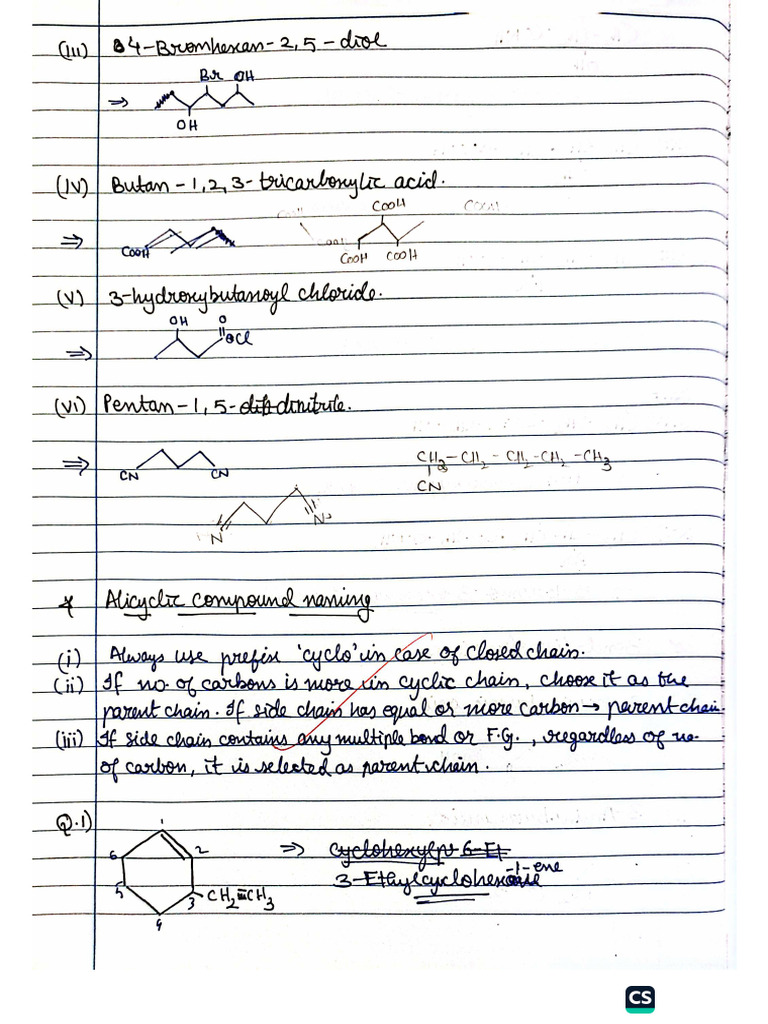 (iii) 4-Bromhexan-2,5-diol
Br OH
⇒
OH
(iv) Butan-1,2,3-tricarboxylic acid.
COOH
⇒ COOH
COOH COOH
(v) 3-hydroxybutanoyl chloride.
OH O
⇒ Cl
(vi) Pentan-1,5-dinitrile.
⇒ CN CN
CH2-CH2-CH2-CH2-CH3
CN
N N
* Alicyclic compound naming
(i) Always use prefix 'cyclo' in case of closed chain.
(ii) If no. of carbons is more in cyclic chain, choose it as the
parent chain. If side chain has equal or more carbon → parent chain
(iii) If side chain contains any multiple bond or F.G., regardless of no.
of carbon, it is selected as parent chain.
Q.1) 1
6 2 ⇒ cyclohexyl 6-Et
3-Ethylcyclohex-1-ene
5 3 CH2-CH3
4
CS